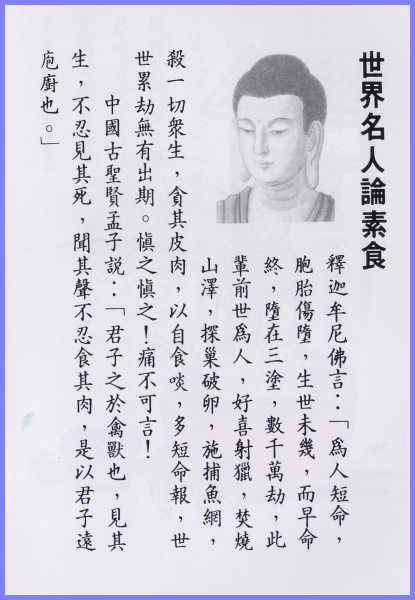 世界名人論素食
釋迦牟尼佛言：「爲人短命，
胞胎傷墮，生世未幾，而早命
終，墮在三塗，數千萬劫，此
輩前世爲人，好喜射獵，焚燒
山澤，探巢破卵，施捕魚網，
殺一切衆生，貪其皮肉，以自食啖，多短命報，世
世累劫無有出期。愼之愼之！痛不可言！
中國古聖賢孟子説：「君子之於禽獸也，見其
生，不忍見其死，聞其聲不忍食其肉，是以君子遠
庖廚也。」